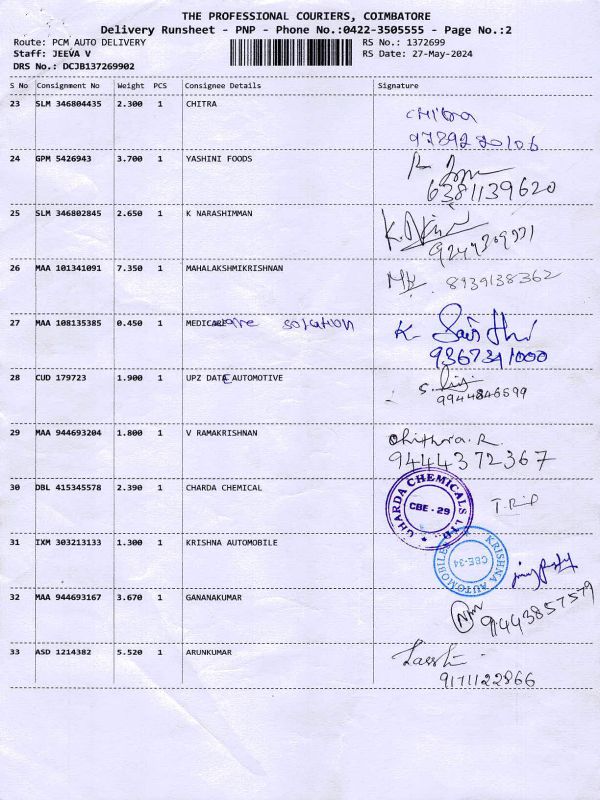 THE PROFESSIONAL COURIERS, COIMBATORE
Delivery Runsheet - PNP - Phone No.:0422-3505555 - Page No.:2
Route: PCM AUTO DELIVERY RS No.: 1372699
Staff: JEEVA V RS Date: 27-May-2024
DRS No.: DCJB137269902
S No Consignment No Weight PCS Consignee Details Signature
23 SLM 346804435 2.300 1 CHITRA
Chitra
9789220106
24 GPM 5426943 3.700 1 YASHINI FOODS
R
6381139620
25 SLM 346802845 2.650 1 K NARASHIMMAN
26 MAA 101341091 7.350 1 MAHALAKSHMIKRISHNAN
8939138362
27 MAA 108135385 0.450 1 MEDICARE solation
K
9367341000
28 CUD 179723 1.900 1 UPZ DATA AUTOMOTIVE
S.
9944846599
29 MAA 944693204 1.800 1 V RAMAKRISHNAN
Chithra. R
9444372367
30 DBL 415345578 2.390 1 CHARDA CHEMICAL
GHARDA CHEMICALS LTD.
CBE - 29
31 IXM 303213133 1.300 1 KRISHNA AUTOMOBILE
KRISHNA AUTOMOBILE
CBE-34
32 MAA 944693167 3.670 1 GANANAKUMAR
9443857579
33 ASD 1214382 5.520 1 ARUNKUMAR
9171122866